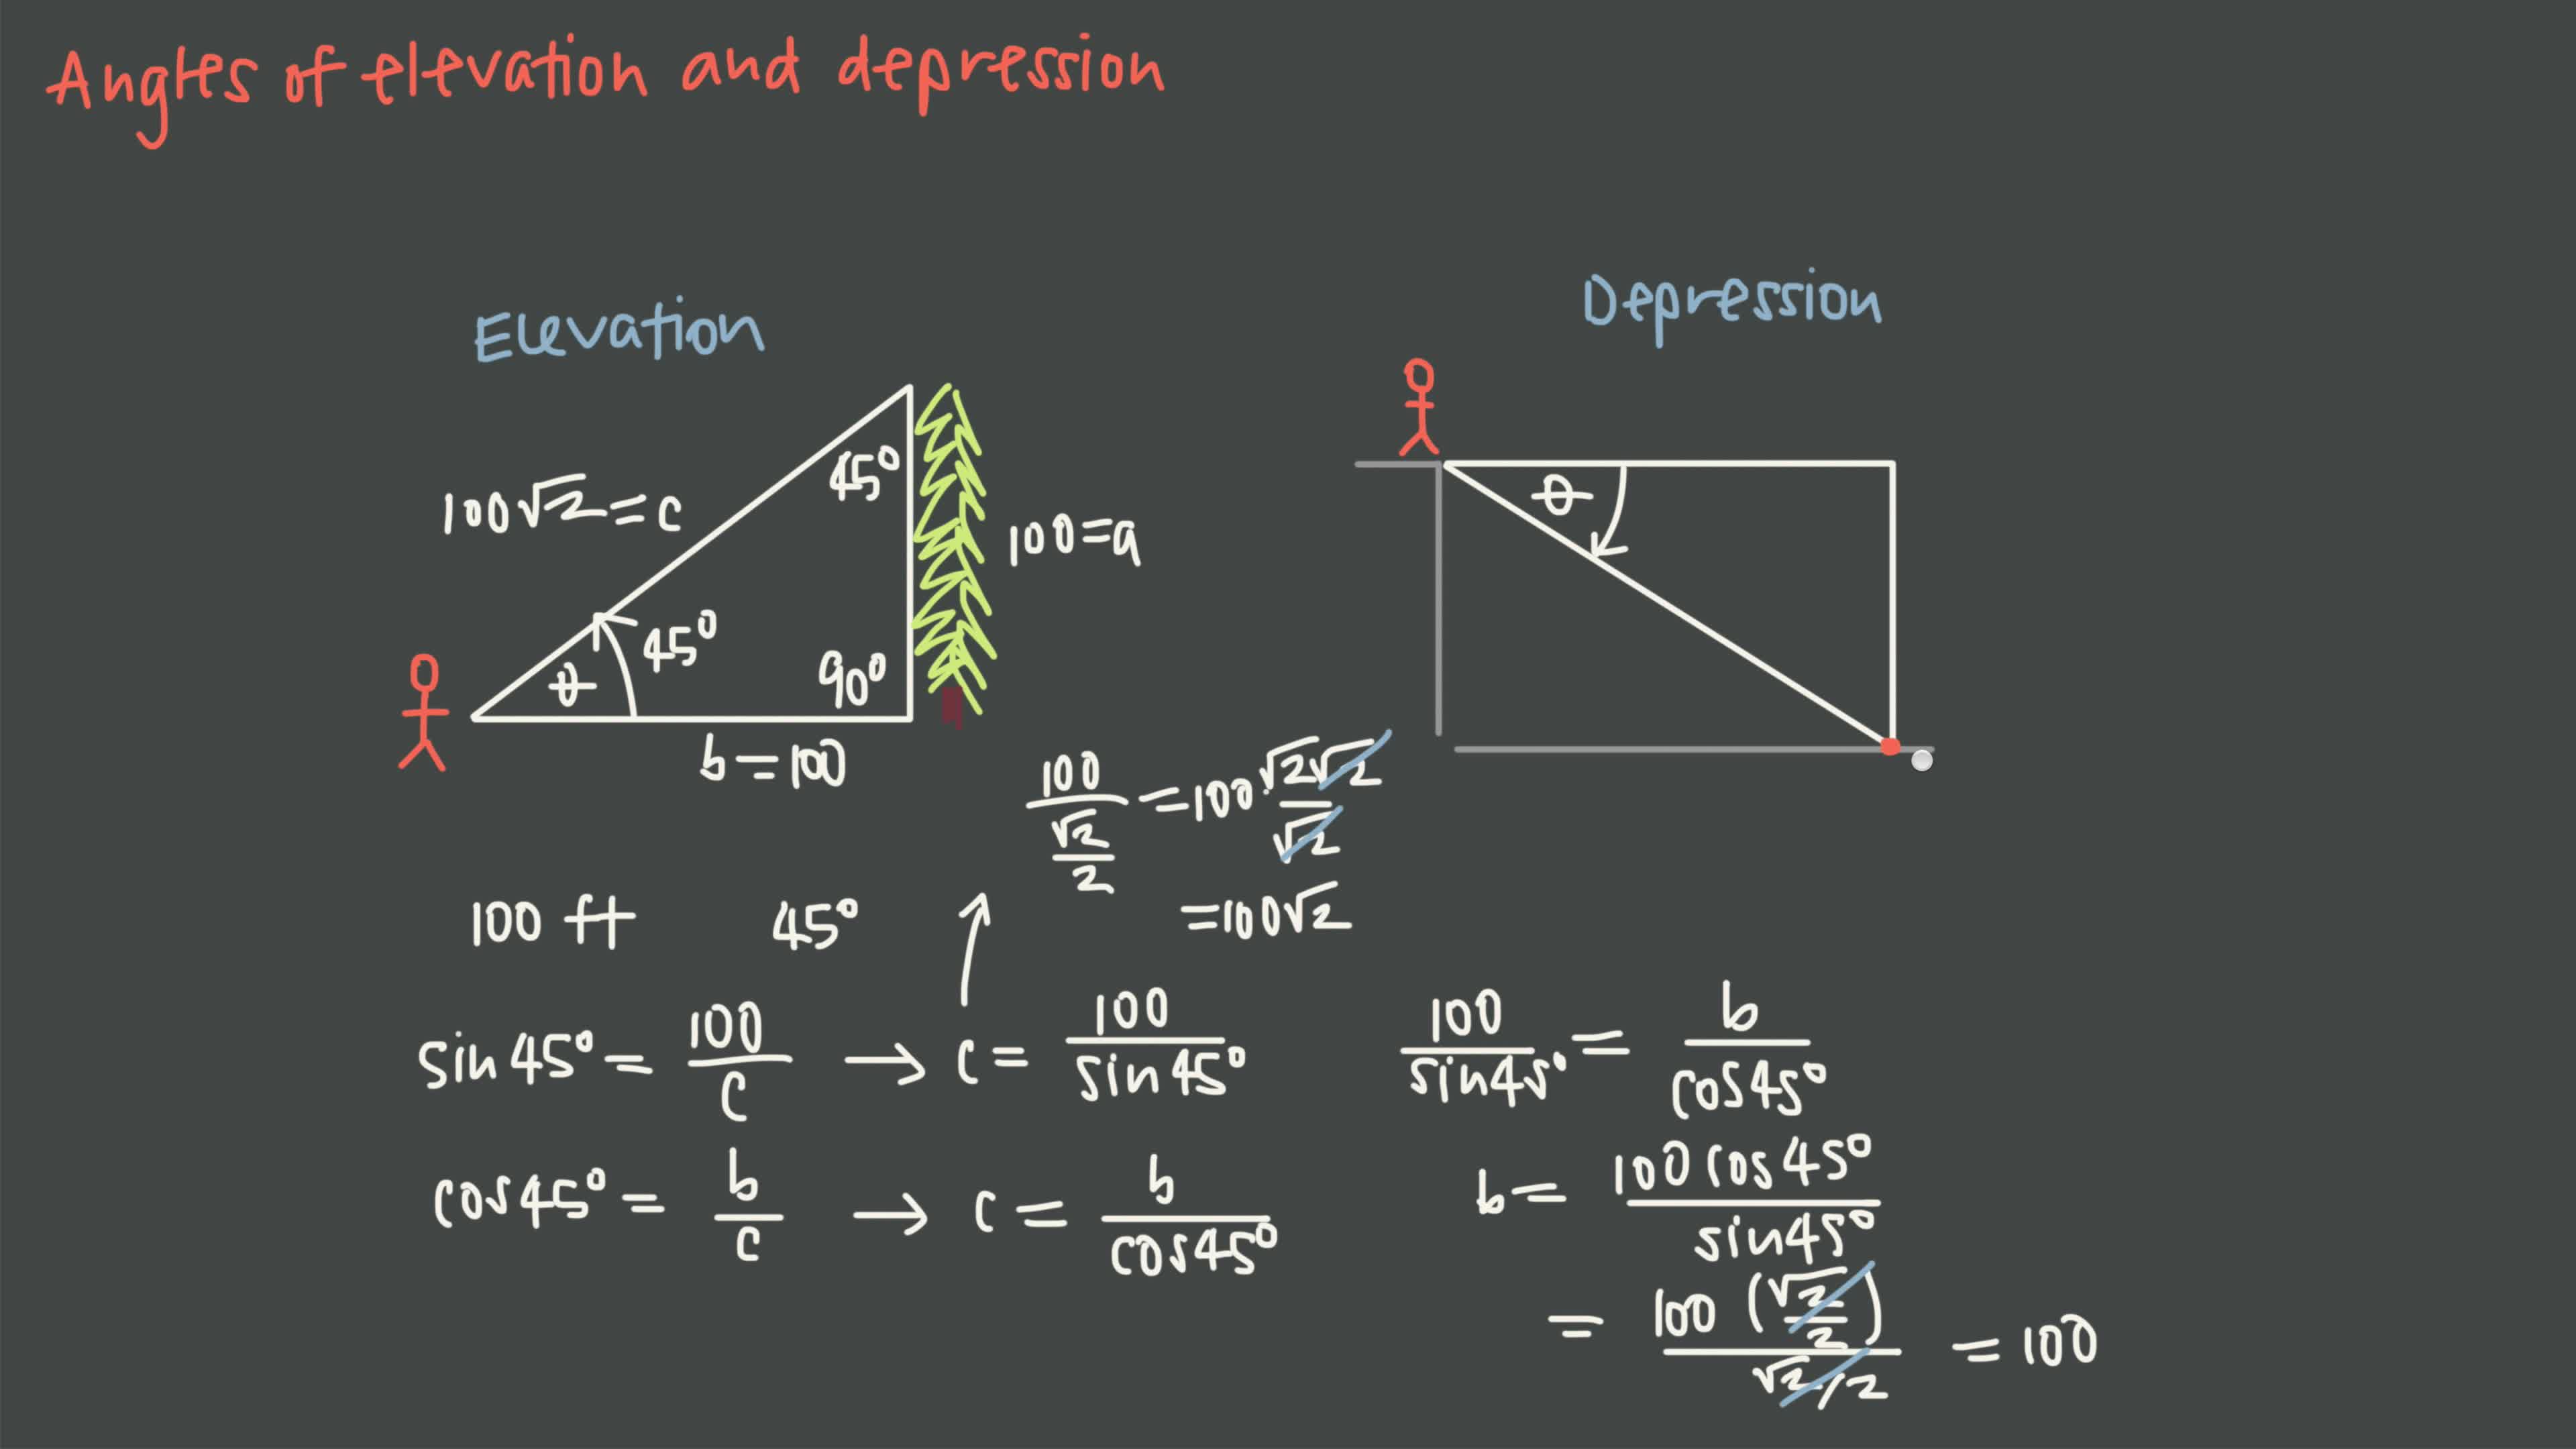 Angles of elevation and depression
Elevation
Depression
45°
100√2 = c
100 = a
45°
θ
90°
b = 100
θ
100/(√2/2) = 100 · √2√2/√2
= 100√2
100 ft 45°
sin 45° = 100/c → c = 100/sin 45°
100/sin 45° = b/cos 45°
cos 45° = b/c → c = b/cos 45°
b = 100 cos 45°/sin 45°
= 100 (√2/2)/√2/2 = 100